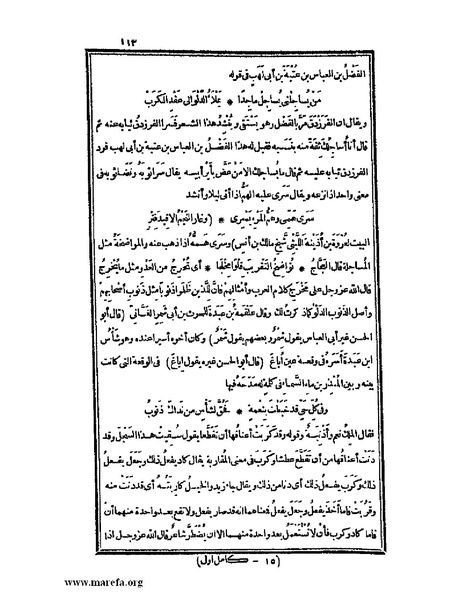 ١١٣
الفَضْل بن العباس بن عُتْبة بن أبى لَهَب فى قوله
مَنْ يُساجِلْنى يُساجِلْ ماجدًا * يَمْلَأُ الدَّلْوَ الى عَقْدِ الكَرَبْ
ويقال ان الفرزدق مَرَّ بالفَضْل وهو يَسْتَقى ويُنْشد هذا الشعر فَسَرا الفرزدق ثيابه عنه ثم
قال أنا أُساجِلُكَ ثقةً منه بنَسَبه فقيل له هذا الفَضْل بن العباس بن عتبة بن أبى لهب فرد
الفرزدق ثيابه عليه ثم قال ما يُساجلك الا مَنْ عَضَّ بأَيْرِ أبيه يقال سَرا ثوبَه ونَضا ثوبَه فى
معنى واحد اذا نزعه ويقال سَرَى عليه الهَمُّ اذا أتى ليلا وأنشد
سَرَى هَمِّى وهَمُّ المَرْءِ يَسْرى * (وغارَ النَّجْمُ الا قِيدَ فِتْر)
البيت لعُرْوَة بن أُذَيْنة اللَّيْثى (شيخ مالك بن أنس) وسَرَى هَمُّه اذا ذهب عنه والمواضَخَة مثل
المساجلة قال العَجَّاج * تُواضِخُ التقريبَ قِلْوًا مِحْلَجَا * أى تُخْرِج من العَدْو مثل ما يُخْرِج
قال الله عز وجل على مَخْرَج كلام العرب وأمثالهم فإنَّ للَّذين ظَلَموا ذَنُوبًا مثلَ ذَنُوب أصحابهم
وأصل الذَّنُوب الدَّلْو كما ذكرت لك وقال عَلْقَمة بن عَبَدة للحرث بن أبى شَمِر الغَسَّانى (قال أبو
الحسن غير أبى العباس يقول شَمِر وبعضهم يقول شَمْر) وكان أخوه أسيرا عنده وهو شَأْس
ابن عَبَدة أسَرَه فى وقعة عين أُباغ (قال أبو الحسن غيره يقول اِباغ) فى الوقعة التى كانت
بينه وبين المُنْذر بن ماء السماء فى كلمة له مدحه فيها
وفى كُلِّ حَىٍّ قد خَبَطْتَ بنِعمةٍ * فَحُقَّ لشَأْسٍ من نَداكَ ذَنُوبُ
فقال الملك نعم وأَذْنِبَة وقوله وقد كَرَبَتْ أعناقُها أن تَقَطَّعا يقول سُقِيَتْ هذا السَّجْل وقد
دَنَتْ أعناقها من أن تَقَطَّع عطشا وكَرَب فى معنى المقاربة يقال كاد يفعل ذلك وجعل يفعل
ذلك وكَرَب يفعل ذلك أى دنا من ذلك ويقال جاء زيد والخيل كاربَتُه أى قد دنت منه
وقربت فاما أخذ يفعل وجعل يفعل فمعناهما انه قد صار يفعل ولا تقع بعد واحدة منهما أن
فاما كاد وكرب فأنْ لا تُسْتَعمل بعد واحدة منهما الا أن يُضْطَرَّ شاعر قال الله عز وجل اذا
(١٥ - كامل اول)
www.marefa.org